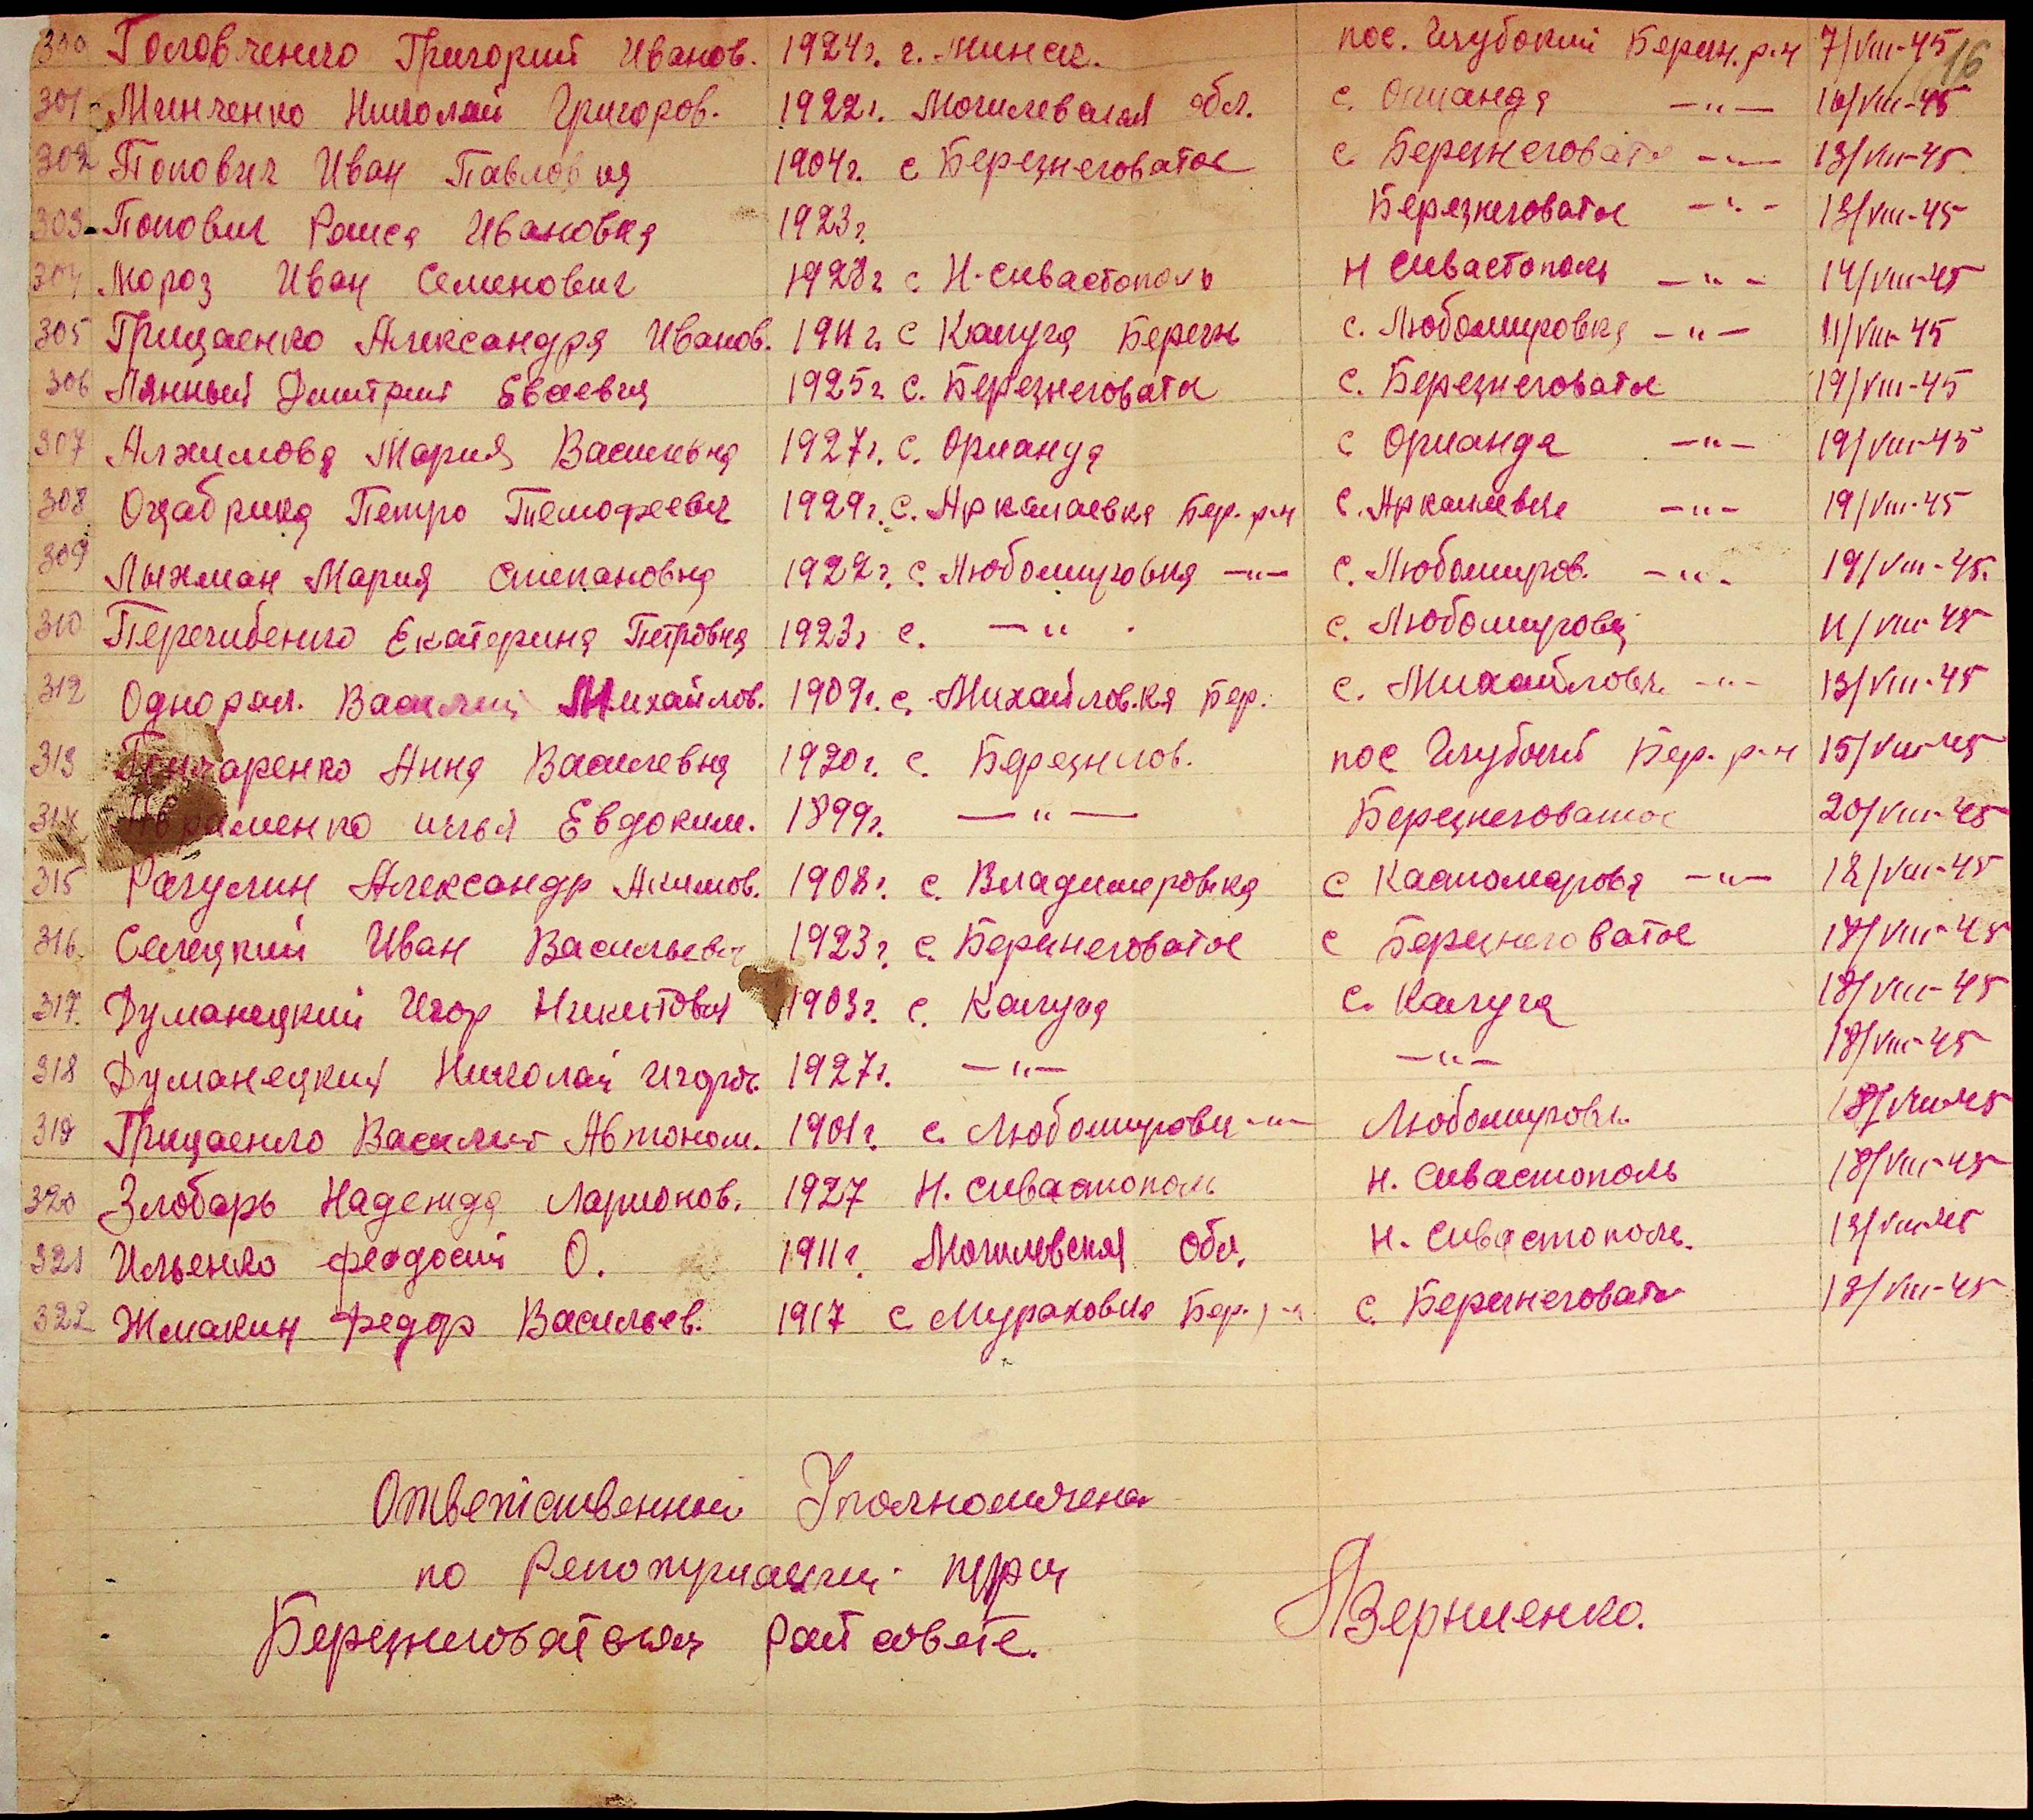 16
300 Головченко Григорий Иванов. 1924г. г. Минск. пос. Глубокий Березн. р-н 7/VIII-45
301 Минченко Николай Григоров. 1922г. Могилевская обл. с. Орианда —"— 10/VIII-45
302 Попович Иван Павлович 1904г. с Березнеговатое с Березнеговатое —"— 13/VIII-45
303 Попович Раиса Ивановна 1923г. Березнеговатое —"— 13/VIII-45
304 Мороз Иван Семенович 1928г с Н-Сивастополь Н Сивастополь —"— 14/VIII-45
305 Грицаенко Александра Иванов. 1911г. с Калуга Березн с. Любомировка —"— 11/VIII-45
306 Лянный Дмитрий 1925г с. Березнеговатое с. Березнеговатое 19/VIII-45
307 Алхимова Мария Васильевна 1927г. с. Орианда с Орианда —"— 19/VIII-45
308 Оцабрика Петро Тимофеевич 1929г. с. Аркалаевка Бер. р-н с. —"— 19/VIII-45
309 Лыхман Мария Степановна 1922г. с. Любомировка —"— с. Любомиров. —"— 19/VIII-45.
310 Екатерина Петровна 1923г с. —"— с. Любомировка 11/VIII-45
312 Однорал. Василий Михайлов. 1909г. с. Михайловка Бер. с. Михайловк. —"— 13/VIII-45
313 Гончаренко Анна Василевна 1920г. с. Березнегов. пос Глубокий Бер. р-н 15/VIII-45
314 Илья Евдоким. 1899г. —"— Березнеговатое 20/VIII-45
315 Рагулин Александр Акимов. 1908г. с. Владимировка с Кастомарова —"— 18/VIII-45
316. Селецкий Иван Васильевич 1923г. с. Березнеговатое с Березнеговатое 18/VIII-45
317. Думанецкий Игор Никитович 1903г. с. Калуга с. Калуга 18/VIII-45
318 Думанецкий Николай Игоров. 1927г. —"— —"— 18/VIII-45
319 Грицаенко Василий Автоном. 1901г. с. Любомировк —"— Любомировк. 18/VIII-45
320 Злобарь Надежда Ларионов. 1927 Н. Сивастополь Н. Сивастополь 18/VIII-45
321 Ильенко Феодосий О. 1911г. Могилевская Обл. Н. Сивастополь. 13/VIII-45
322 Жмакин Федор Васильев. 1917 с. Мураховка Бер. р-н с. Березнеговатое 18/VIII-45
Ответственный Уполномочена
по Репотриации при
Березнеговатском райсовете. Верниенко.